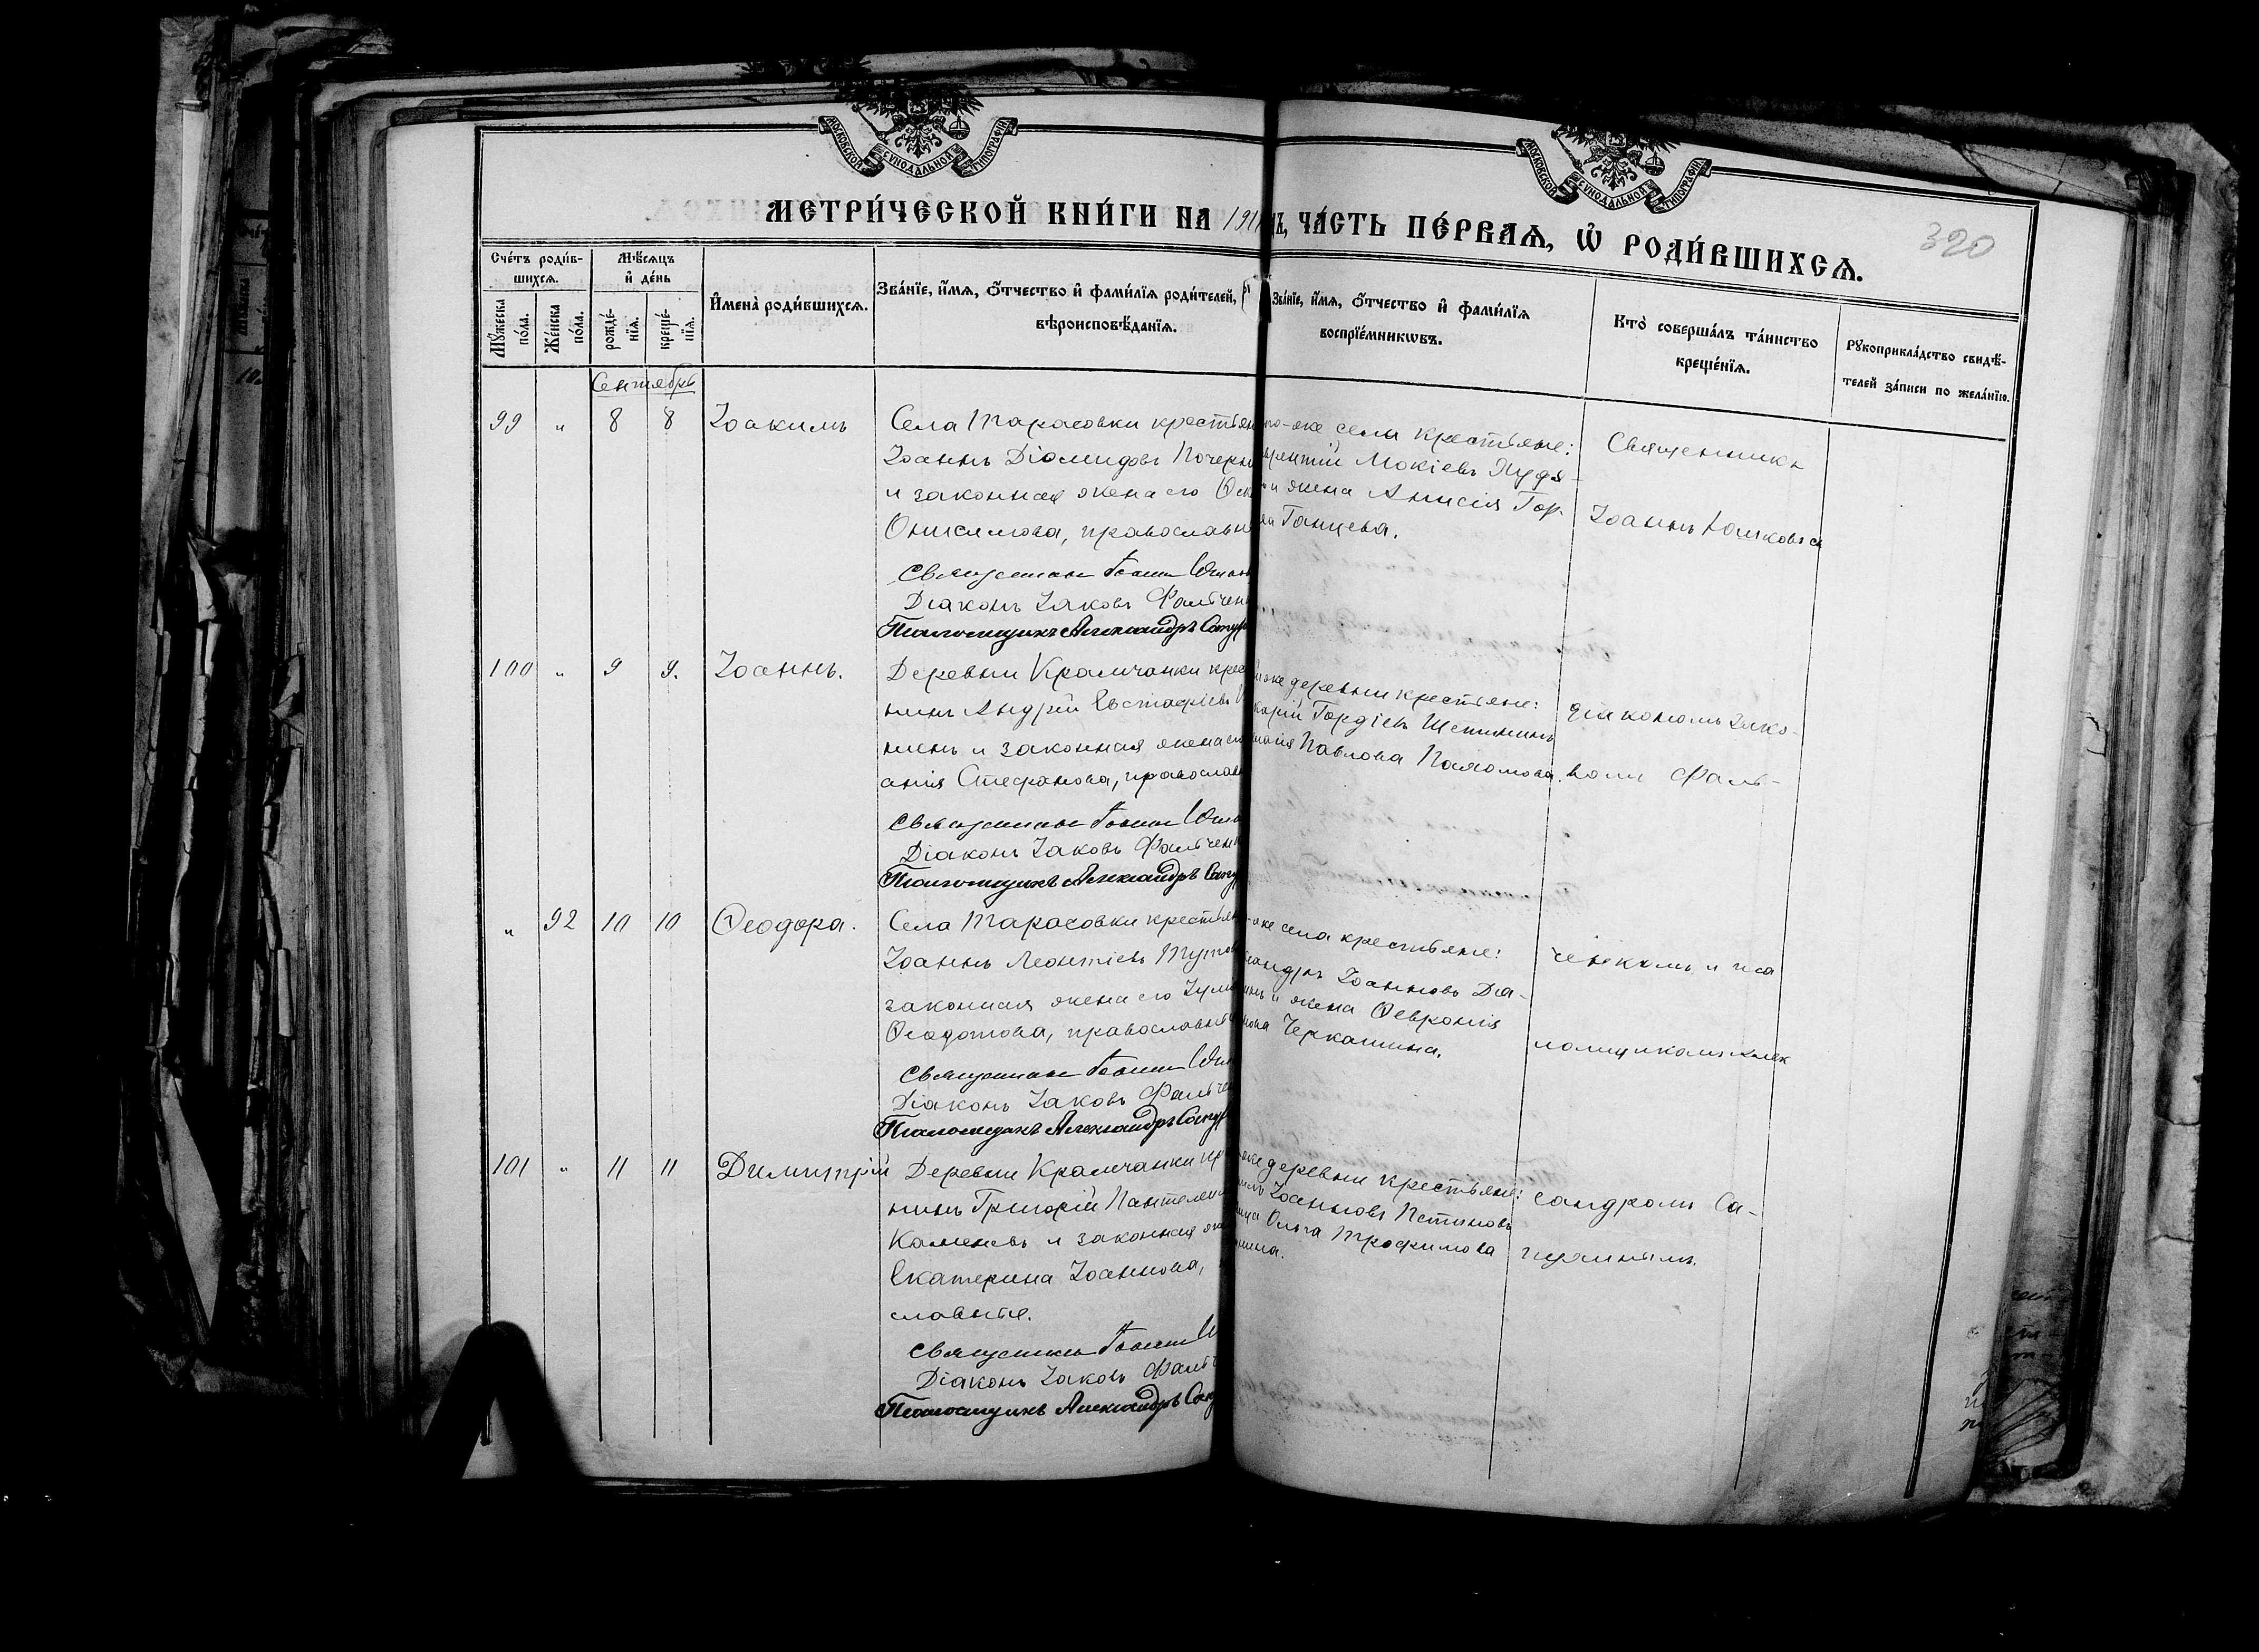 МОСКОВСКОЙ СѴНОДАЛЬНОЙ ТИПОГРАФІИ
МОСКОВСКОЙ СѴНОДАЛЬНОЙ ТИПОГРАФІИ
МЕТРИ́ЧЕСКОЙ КНИ́ГИ НА 191
Ъ, ЧА́СТЬ ПЕ́РВАѦ, Ѽ РОДИ́ВШИХСѦ.
320
Сче́тъ роди́в-
шихсѧ.
Мꙋ́жеска
по́ла.
Же́нска
по́ла.
Мѣ́сѧцъ
и҆ де́нь
рожде́-
нїѧ.
креще́-
нїѧ.
И҆мена̀ роди́вшихсѧ.
Зва́нїе, и҆́мѧ, ѻ҆́тчество и҆ фами́лїѧ роди́телей,
вѣроисповѣ́данїѧ.
Зва́нїе, и҆́мѧ, ѻ҆́тчество и҆ фами́лїѧ
воспрїе́мникѡвъ.
Кто̀ соверша́лъ та́инство
креще́нїѧ.
Рꙋкоприкла́дство свидѣ́-
телей за́писи по жела́нїю.
Сентябрь
99 " 8 8 Іоакимъ
Села Тарасовки крестьян
Іоаннъ Діомидовъ Почерн
и законная жена его
Онисимова, православн
Священникъ Іоаннъ Юшков
Діаконъ Іаковъ Фальченк
Псаломщикъ Александръ Сапу
го-же села крестьяне:
рентій Мокіевъ Худя-
и жена Анисія Гор-
Ганцева.
Священникъ
Іоаннъ Юшковъ съ
100 " 9 9. Іоаннъ.
Деревни Крамчанки крес
нинъ Андрей Евстафіевъ
нинъ и законная жена его
анія Стефанова, православ
Священникъ Іоаннъ Юшк
Діаконъ Іаковъ Фальченк
Псаломщикъ Александръ Сапу
же деревни крестьяне:
карій Гордіевъ Щетининъ
Павлова Пахомова.
діакономъ Іако-
вомъ Фаль-
" 92 10 10 Ѳеодора.
Села Тарасовки крестьян
Іоаннъ Леонтіевъ
законная жена его Іулі
Ѳеодотова, православны
Священникъ Іоаннъ Юш
Діаконъ Іаковъ Фальчен
Псаломщикъ Александръ Сапу
же села крестьяне:
сандръ Іоанновъ Діа-
и жена Ѳевронія
нова Черкашина.
ченкомъ и пса
ломщикомъ Алек
101 " 11 11 Димитрій
Деревни Крамчанки кр
нинъ Григорій Пантелеим
Каменевъ и законная же
Екатерина Іоаннова,
славные.
Священникъ Іоаннъ Ю
Діаконъ Іаковъ Фальч
Псаломщикъ Александръ Сапу
же деревни крестьяне:
Іоанновъ Пстиновъ
Ольга Трофимова
нина.
сандромъ Са-
пухинымъ.